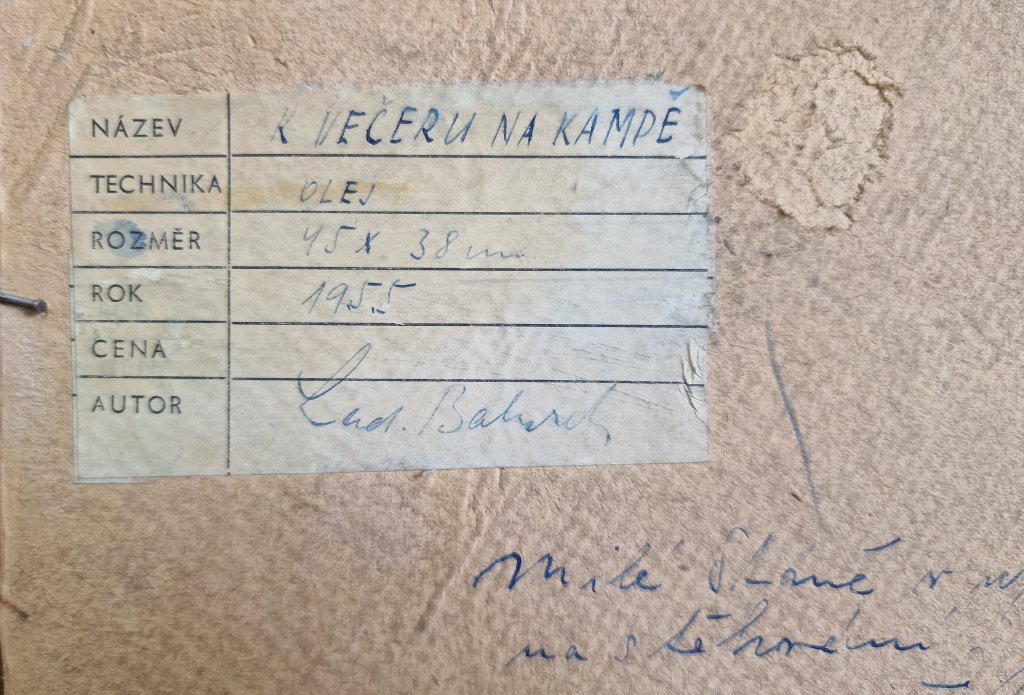 NÁZEV K VEČERU NA KAMPĚ
TECHNIKA OLEJ
ROZMĚR 45 x 38 cm
ROK 1955
CENA
AUTOR Lad.
Milé Staně v
na stěhování